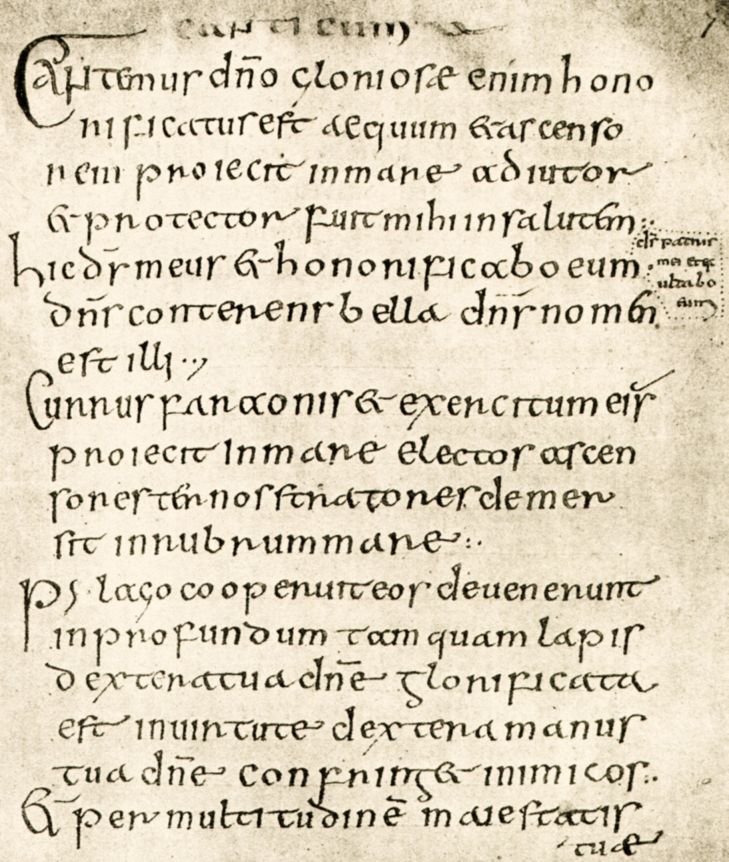 canticum
Cantemus dn̄o gloriosae enim hono
rificatus est aequum & ascenso
rem proiecit in mare adiutor
& protector fuit mihi in salutem:.
hic dī̄s meus & honorificabo eum·
ds̄ patris
mei et ex
ultabo
eum
dn̄s conterens bella dn̄s nomen
est illi..,
Currus faraonis & exercitum eius
proiecit in mare electos ascen
sores ternos stratores demer
sit in rubrum mare:.
Pilago cooperuit eos deuenerunt
in profundum tamquam lapis
dextera tua dn̄e glorificata
est in uirtute dextera manus
tua dn̄e confring& inimicos:.
& per multitudinē maiestatis
tuae